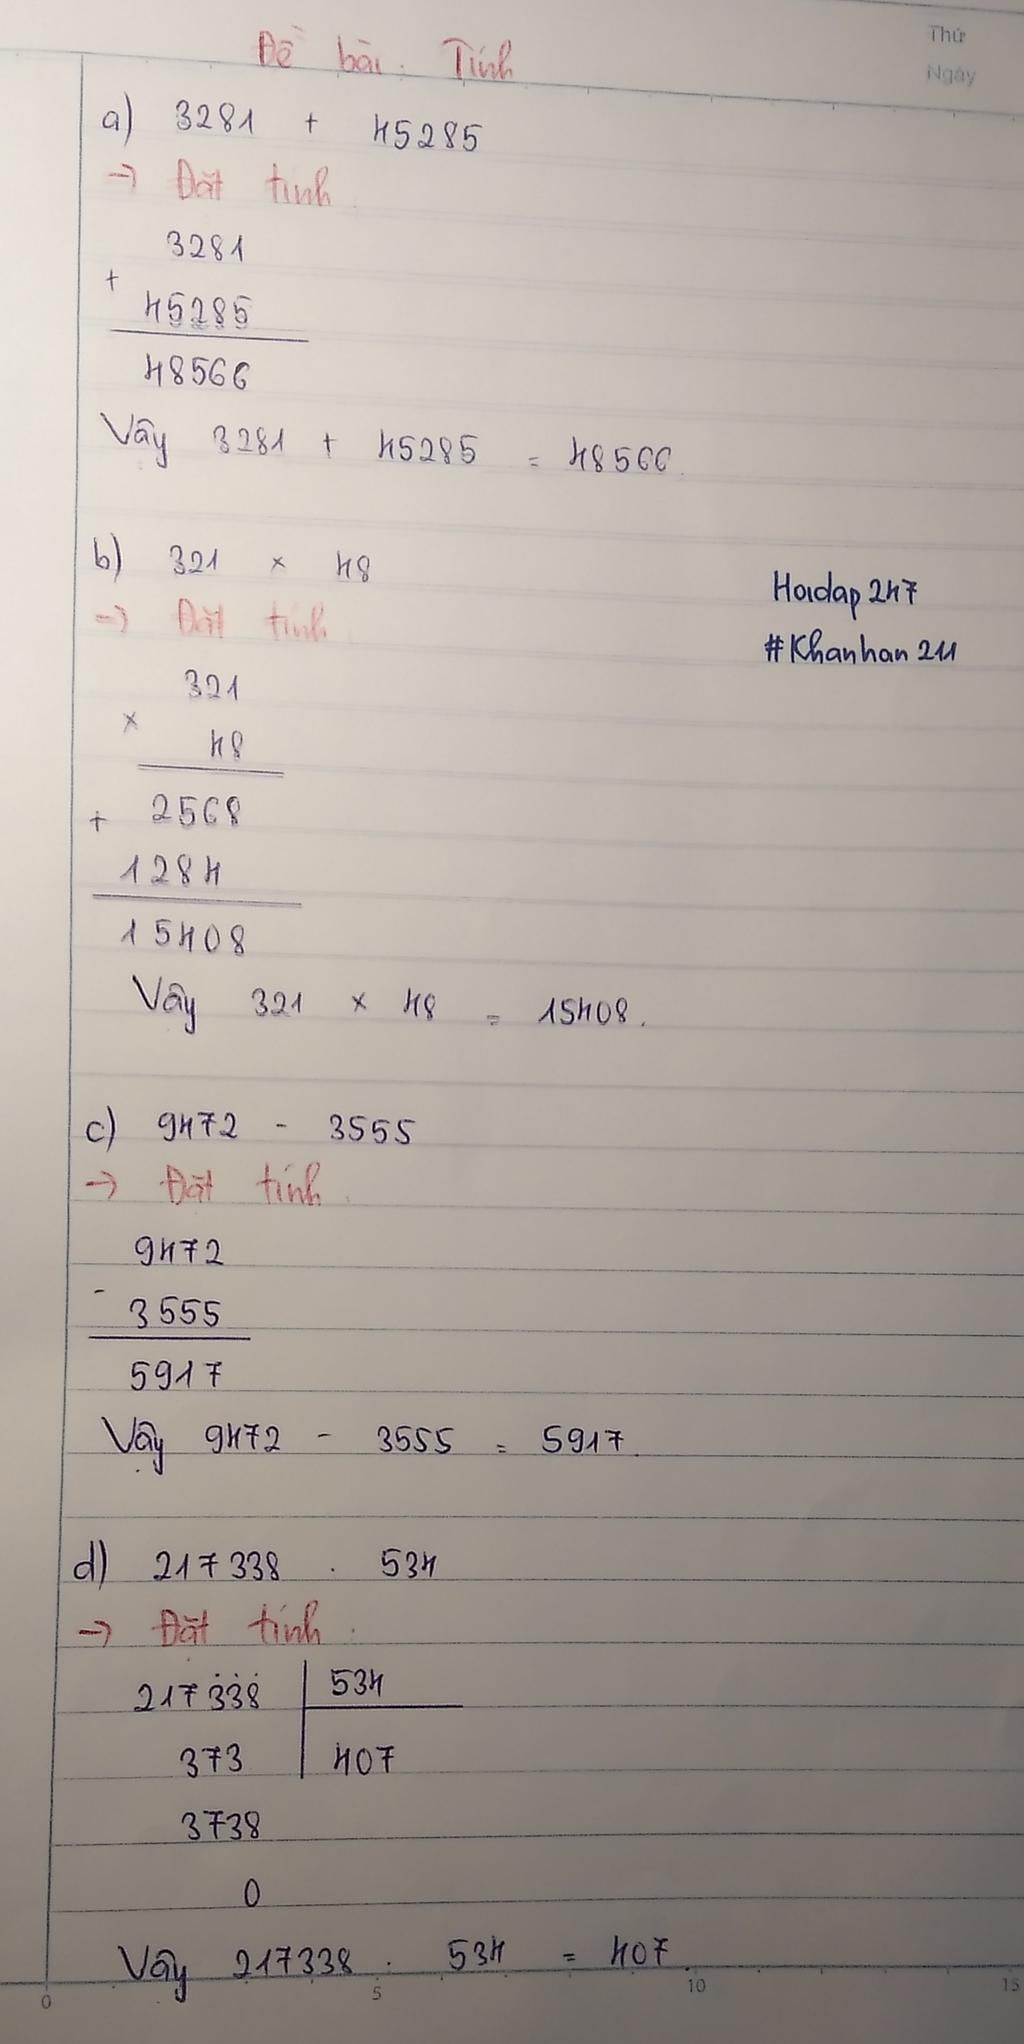 Thứ
Ngày
Đề bài: Tính
a) 3281 + 45285
→ Đặt tính
3281
+
45285
48566
Vậy 3281 + 45285 = 48566.
b) 321 × 48
→ Đặt tính
Hoidap247
#Khanhan211
321
×
48
2568
+
1284
15408
Vậy 321 × 48 = 15408.
c) 9472 - 3555
→ Đặt tính.
9472
-
3555
5917
Vậy 9472 - 3555 = 5917.
d) 217338 : 534
→ Đặt tính.
217338 534
373 407
3738
0
Vậy 217338 : 534 = 407.
0 5 10 15